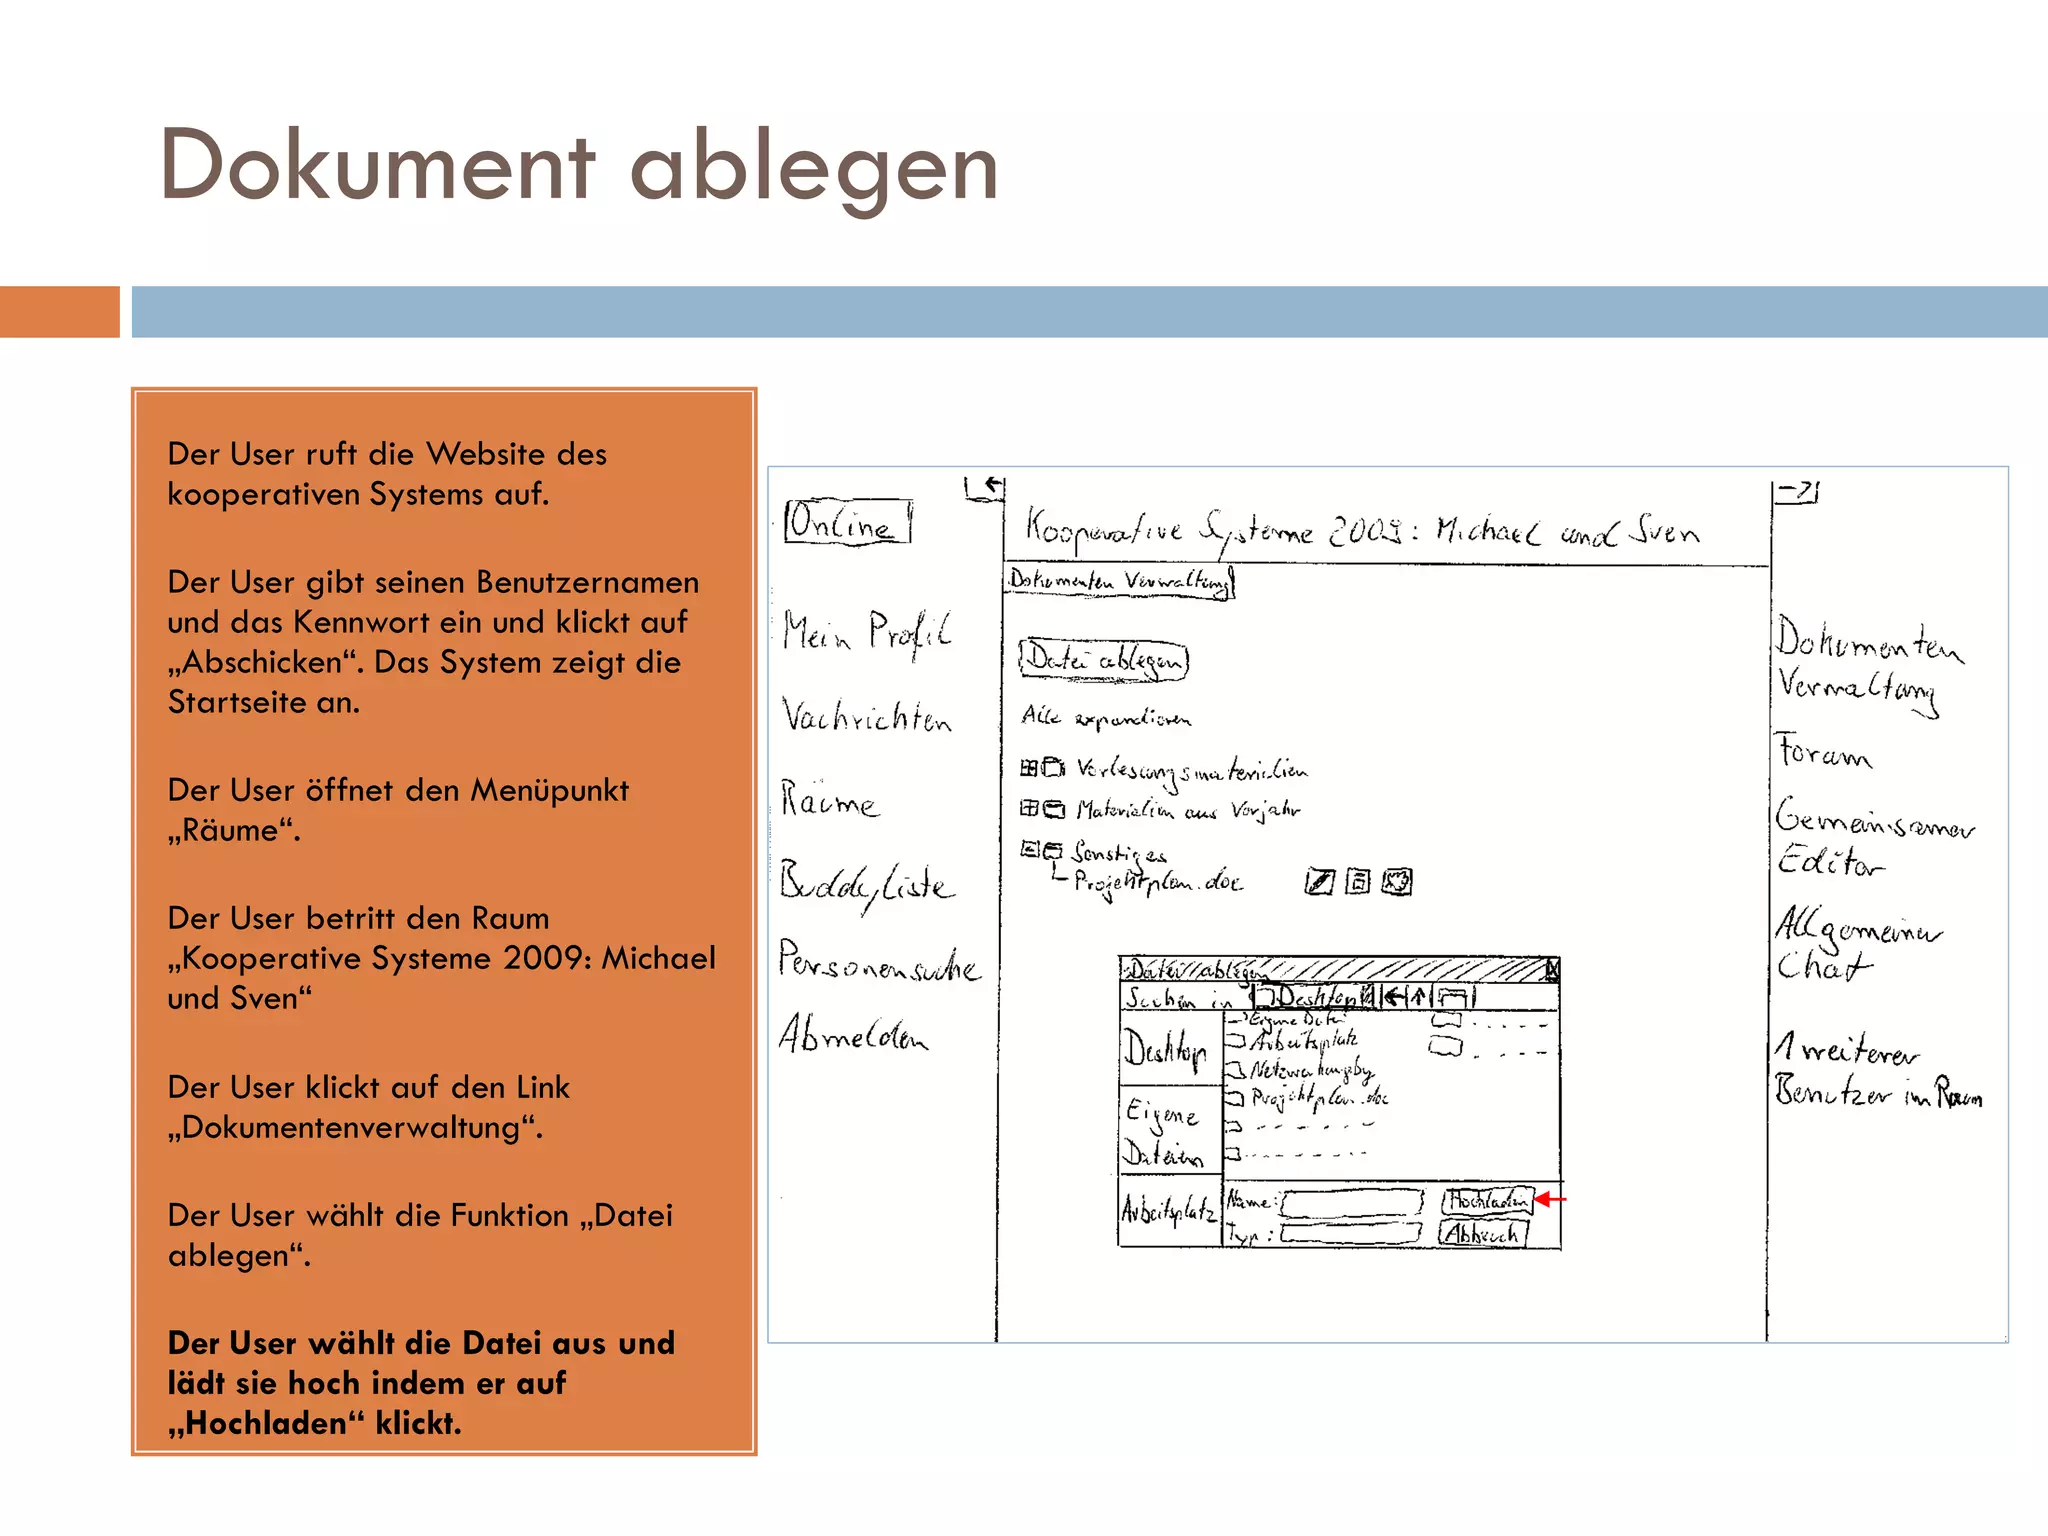 Dokument ablegen
Der User ruft die Website des
kooperativen Systems auf.
Der User gibt seinen Benutzernamen
und das Kennwort ein und klickt auf
„Abschicken“. Das System zeigt die
Startseite an.
Der User öffnet den Menüpunkt
„Räume“.
Der User betritt den Raum
„Kooperative Systeme 2009: Michael
und Sven“
Der User klickt auf den Link
„Dokumentenverwaltung“.
Der User wählt die Funktion „Datei
ablegen“.
Der User wählt die Datei aus und
lädt sie hoch indem er auf
„Hochladen“ klickt.
Online
Mein Profil
Nachrichten
Räume
Buddyliste
Personensuche
Abmelden
Kooperative Systeme 2009: Michael und Sven
Dokumenten Verwaltung
Datei ablegen
Alle expandieren
Vorlesungsmaterialien
Materialien aus Vorjahr
Sonstiges
Projektplan.doc
Datei ablegen
Suchen in Desktop
Desktop
Eigene
Dateien
Arbeitsplatz
Eigene Datei
Arbeitsplatz
Projektplan.doc
Name:
Hochladen
Typ:
Abbruch
Dokumenten
Verwaltung
Forum
Gemeinsamer
Editor
Allgemeiner
Chat
1 weiterer
Benutzer im Raum